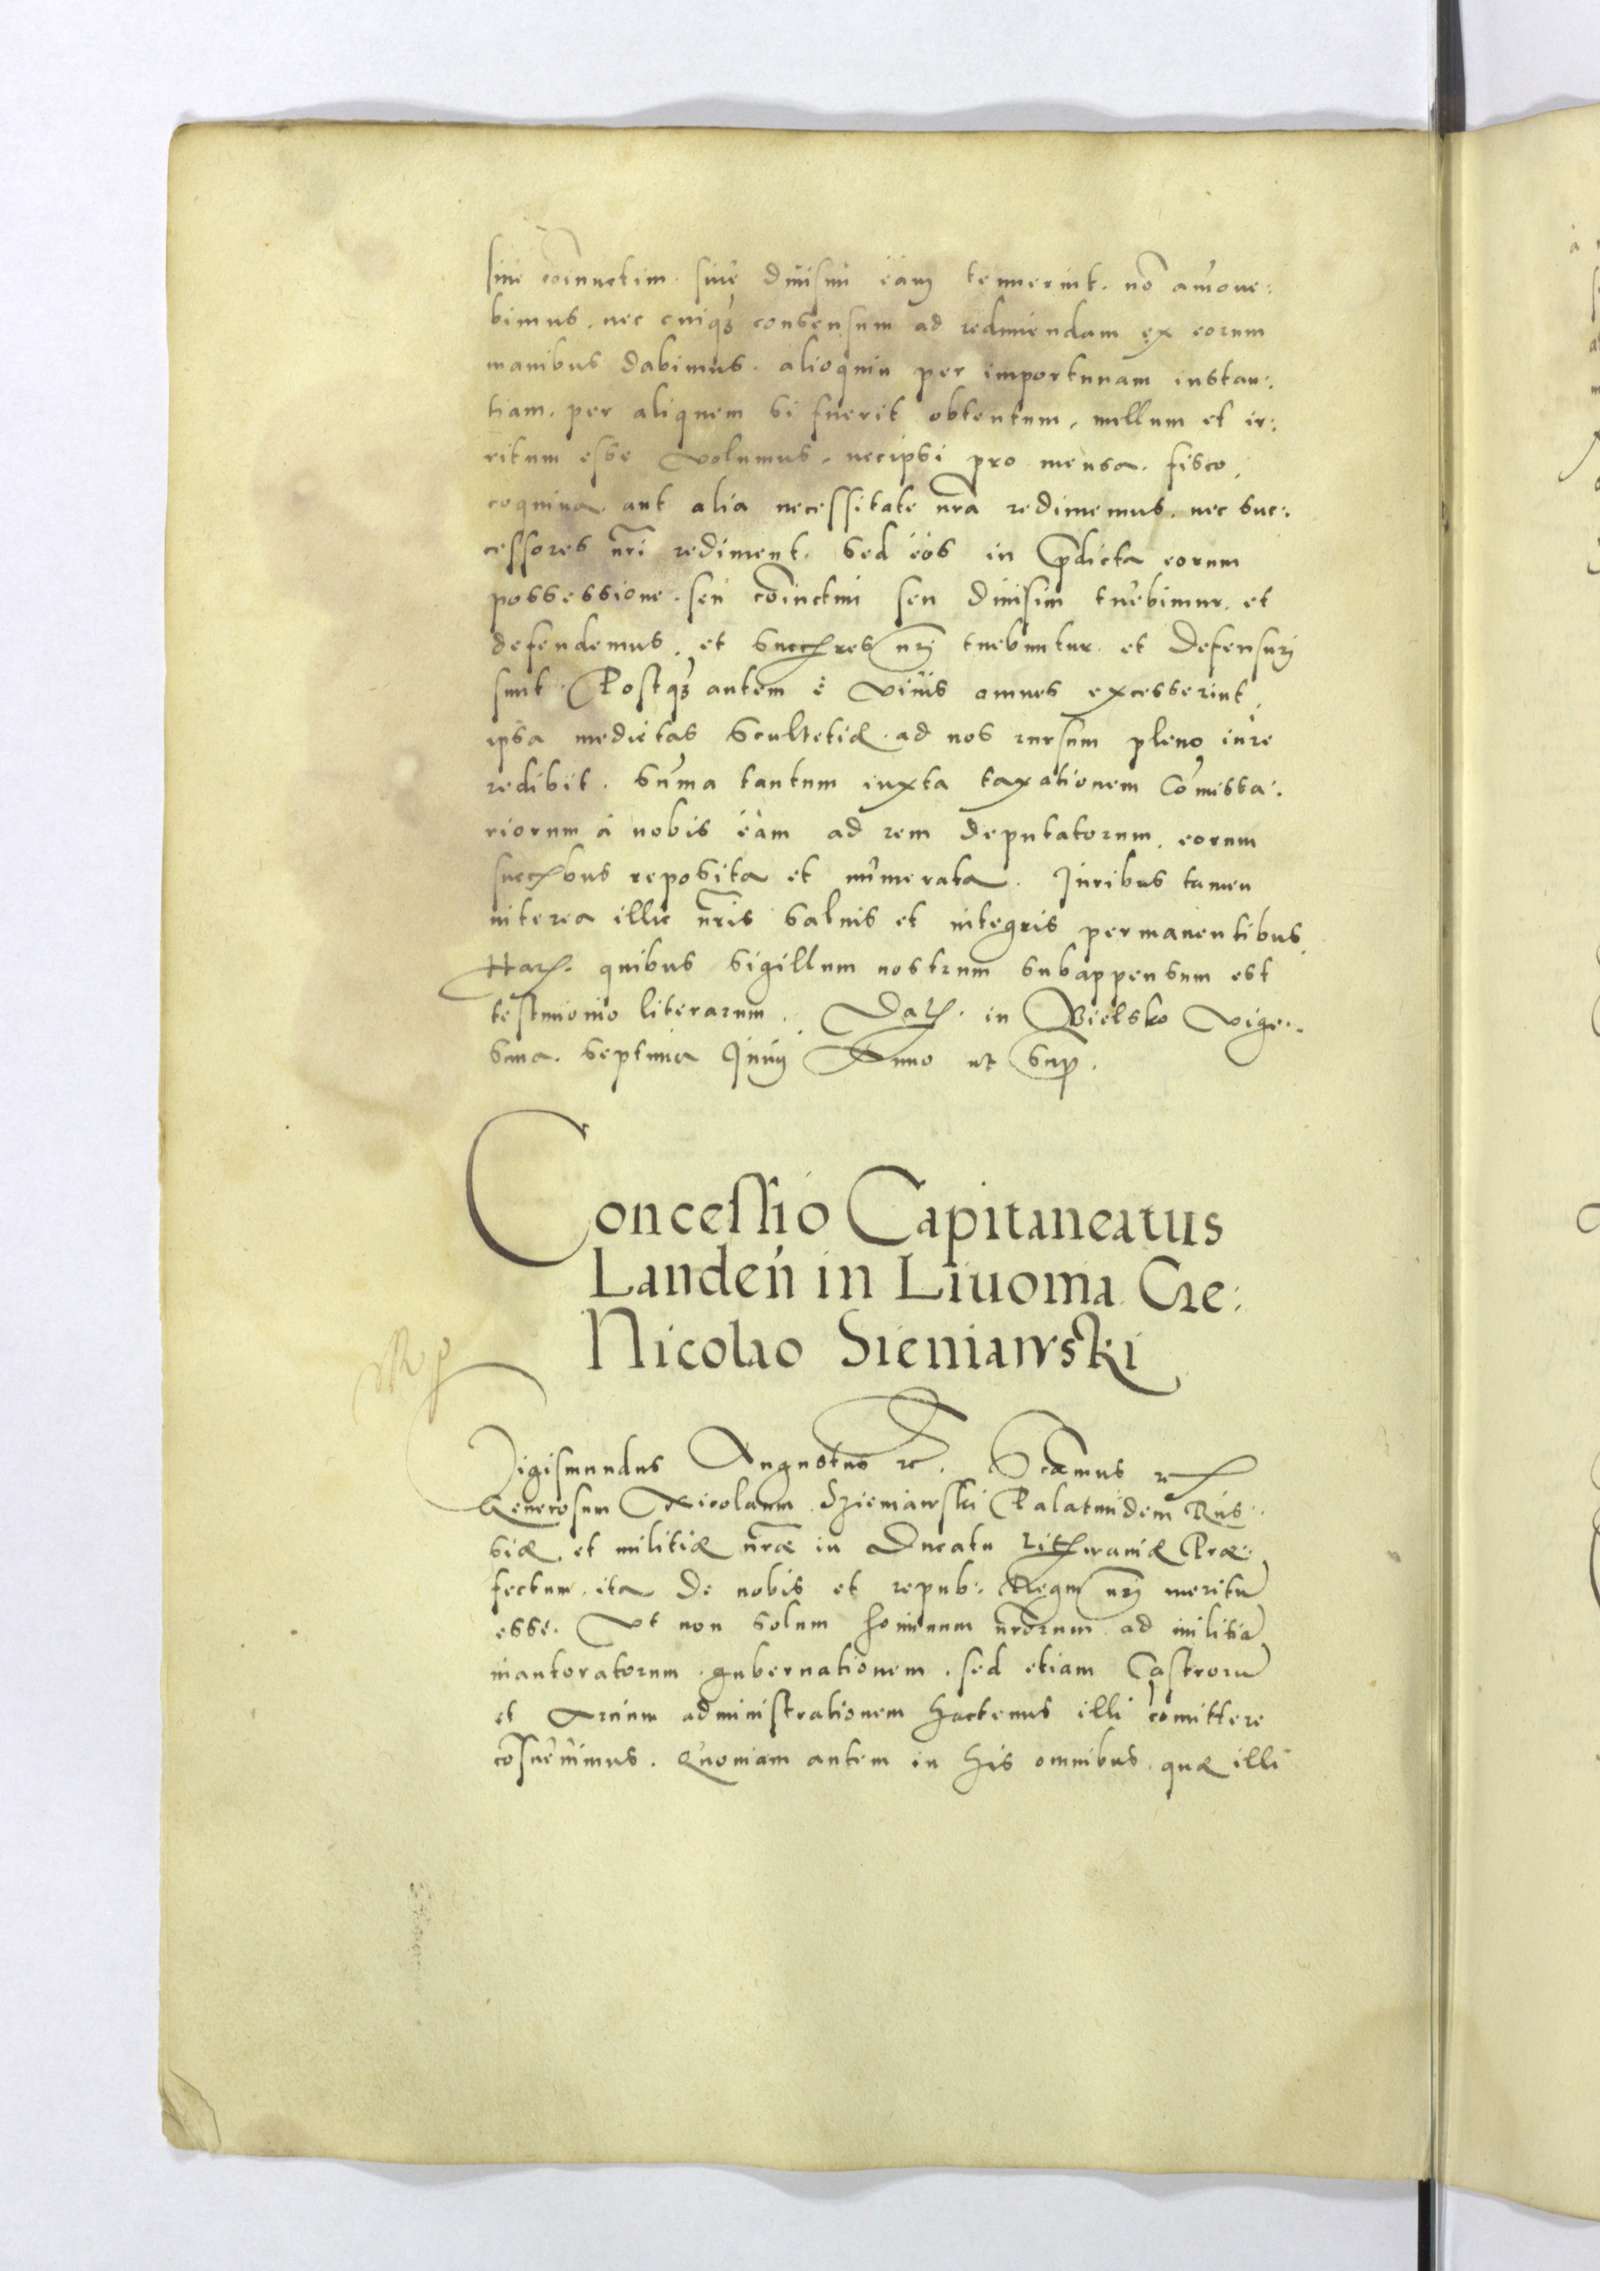 siue coniunctim. siue diuisim eam tenuerint. nō amoue:
bimus. nec cuiqȝ consensum ad redimiendam ex eorum
manibus dabimus. alioquin per importunam instan:
tiam. per aliquem si fuerit obtentum, nullum et ir:
ritum esse volumus. nec ipsi pro mensa. fisco,
coquina. aut alia necessitate nrā redimemus. nec suc:
cessores nrī rediment. Sed eos in p̄dicta eorum
possessione. seu cōiunctim seu diuisim tuebimur. et
defendemus, et succ̄res nrī tuebuntur. et defensurj
sunt. Postqȝ autem è viuis omnes excesserint,
ipsa medietas Scultetiæ. ad nos rursum pleno iure
redibit. Sūma tantum iuxta taxationem Cōmissa:
riorum á nobis eam ad rem deputatorum, eorum
succ̄bus reposita et numerata. Juribus tamen
interea illic nrīs saluis et integris permanentibus
Har. quibus sigillum nostrum subappensum est
testimonio literarum. Dat. in Bielsko vige:
sima. septima Junij Anno ut Sup.
Concessio Capitaneatus
Landeń in Liuonia Ge:
Nicolao Sieniawski
Sigismundus Augustus rc. Scāmus rc
Generosum Nicolaum Szieniawski Palatinidem Rus:
siæ, et militiæ nrāe in Ducatu Lithuaniæ Præ:
fectum. ita de nobis et repub: Regni nrj meritū
esse. Vt non solum hominum nrōrum ad militiā
inautoratorum gubernationem. sed etiam Castrorū
et Arcium administrationem hactenus illi cōmittere
cōsueuimus. Quoniam autem in his omnibus. quæ illi